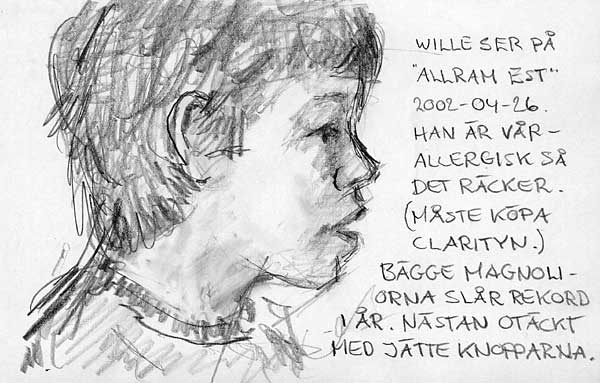 WILLE SER PÅ
"ALLRAM EST"
2002-04-26.
HAN ÄR VÅR-
ALLERGISK SÅ
DET RÄCKER.
(MÅSTE KÖPA
CLARITYN.)
BÄGGE MAGNOLI-
ORNA SLÅR REKORD
I ÅR. NÄSTAN OTÄCKT
MED JÄTTE KNOPPARNA.